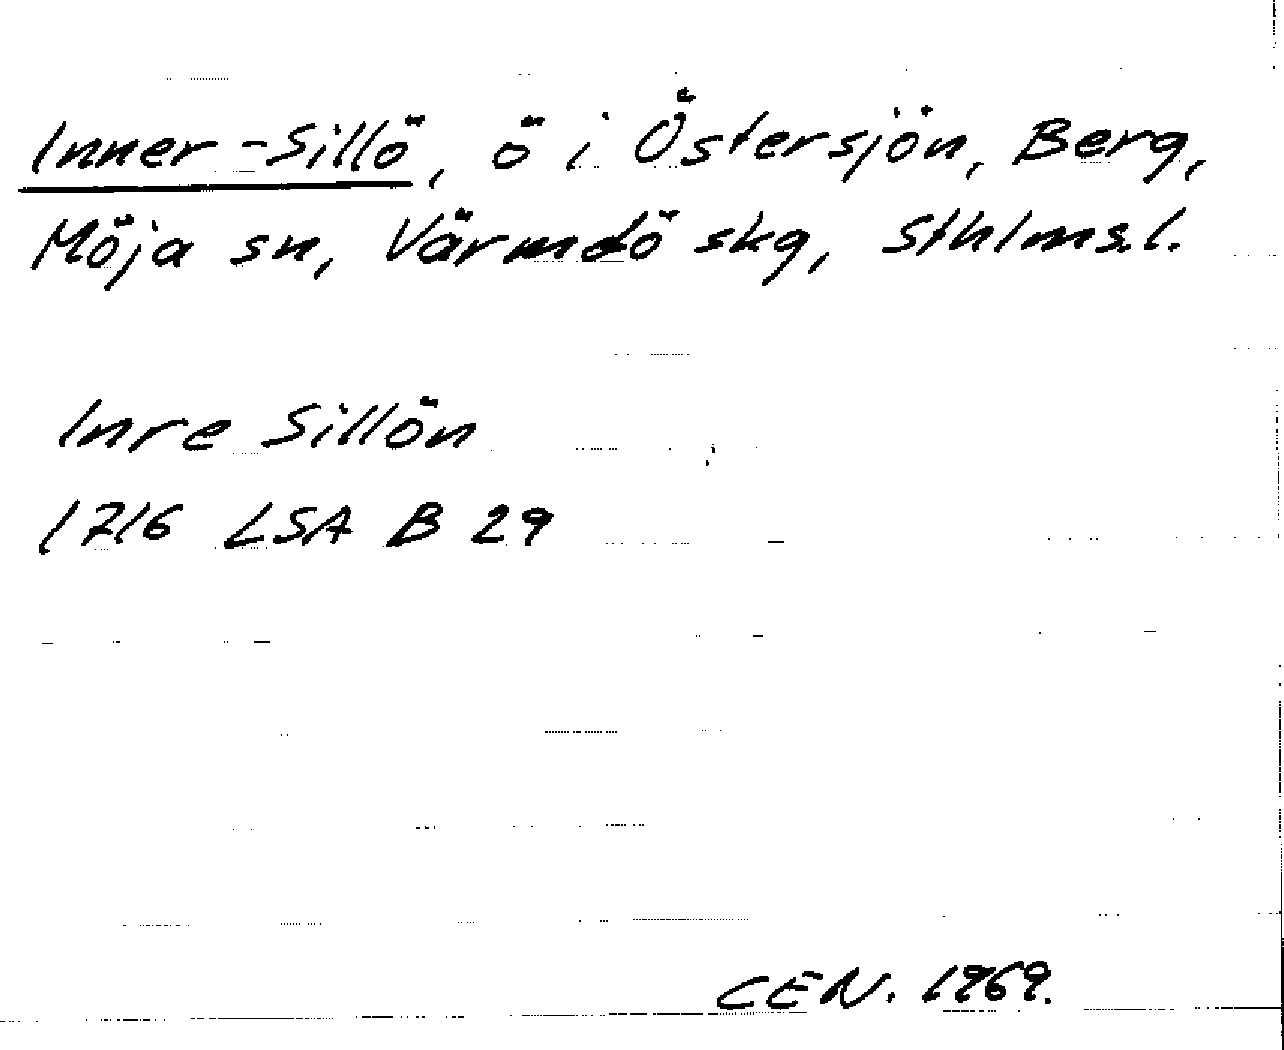 Inner-Sillö, ö i Östersjön, Berg,
Möja sn, Värmdö skg, Sthlms l.
Inre Sillön
1716 LSA B 29
CEN. 1969.